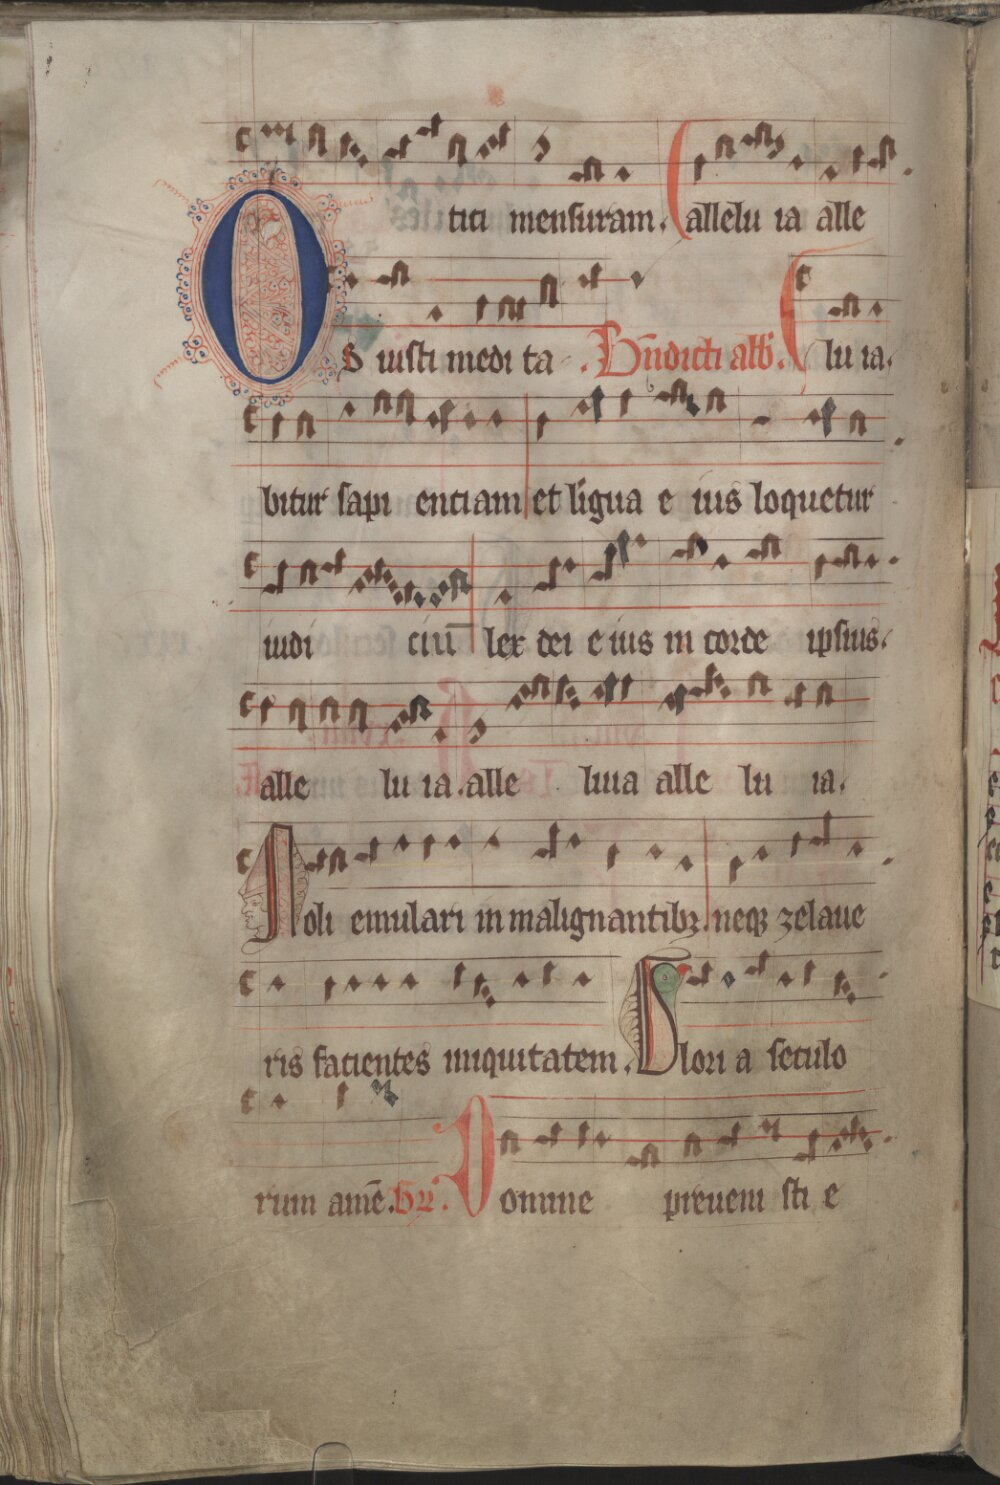 titi mensuram. allelu ia alle
Os iusti medi ta . Bn̄dicti abb̄. lu ia.
bitur sapi entiam et ligua e ius loquetur
iudi ciū lex dei e ius in corde ipsius.
alle lu ia. alle luia alle lu ia.
Noli emulari in malignantibꝫ neqꝫ zelaue
ris facientes iniquitatem. Glori a seculo
rum amē. Domine preueni sti e